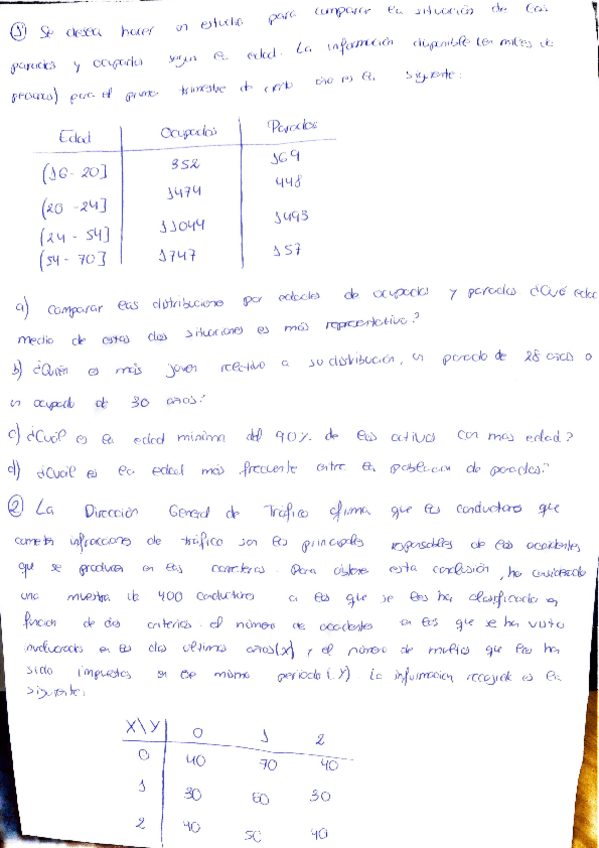 ① Se desea hacer un estudio para comparar la situación de los
parados y ocupados según la edad. La información disponible (en miles de
personas) para el primer trimestre de cierto año es la siguiente:
Edad Ocupados Parados
(16 - 20] 352 169
(20 - 24] 1474 448
(24 - 54] 11044 1493
(54 - 70] 1747 157
a) Comparar las distribuciones por edades de ocupados y parados ¿Qué edad
media de estas dos situaciones es más representativa?
b) ¿Quién es más joven relativo a su distribución, un parado de 28 años o
un ocupado de 30 años?
c) ¿Cuál es la edad mínima del 90% de los activos con más edad?
d) ¿Cuál es la edad más frecuente entre la población de parados?
② La Dirección General de Tráfico afirma que los conductores que
cometen infracciones de tráfico son los principales responsables de los accidentes
que se producen en las carreteras. Para obtener esta conclusión, ha considerado
una muestra de 400 conductores a los que se les ha clasificado en
función de dos criterios: el número de accidentes en los que se ha visto
involucrado en los dos últimos años (X) y el número de multas que les ha
sido impuestas en ese mismo periodo (Y). La información recogida es la
siguiente:
X\Y 0 1 2
0 40 70 40
1 30 60 30
2 40 50 40